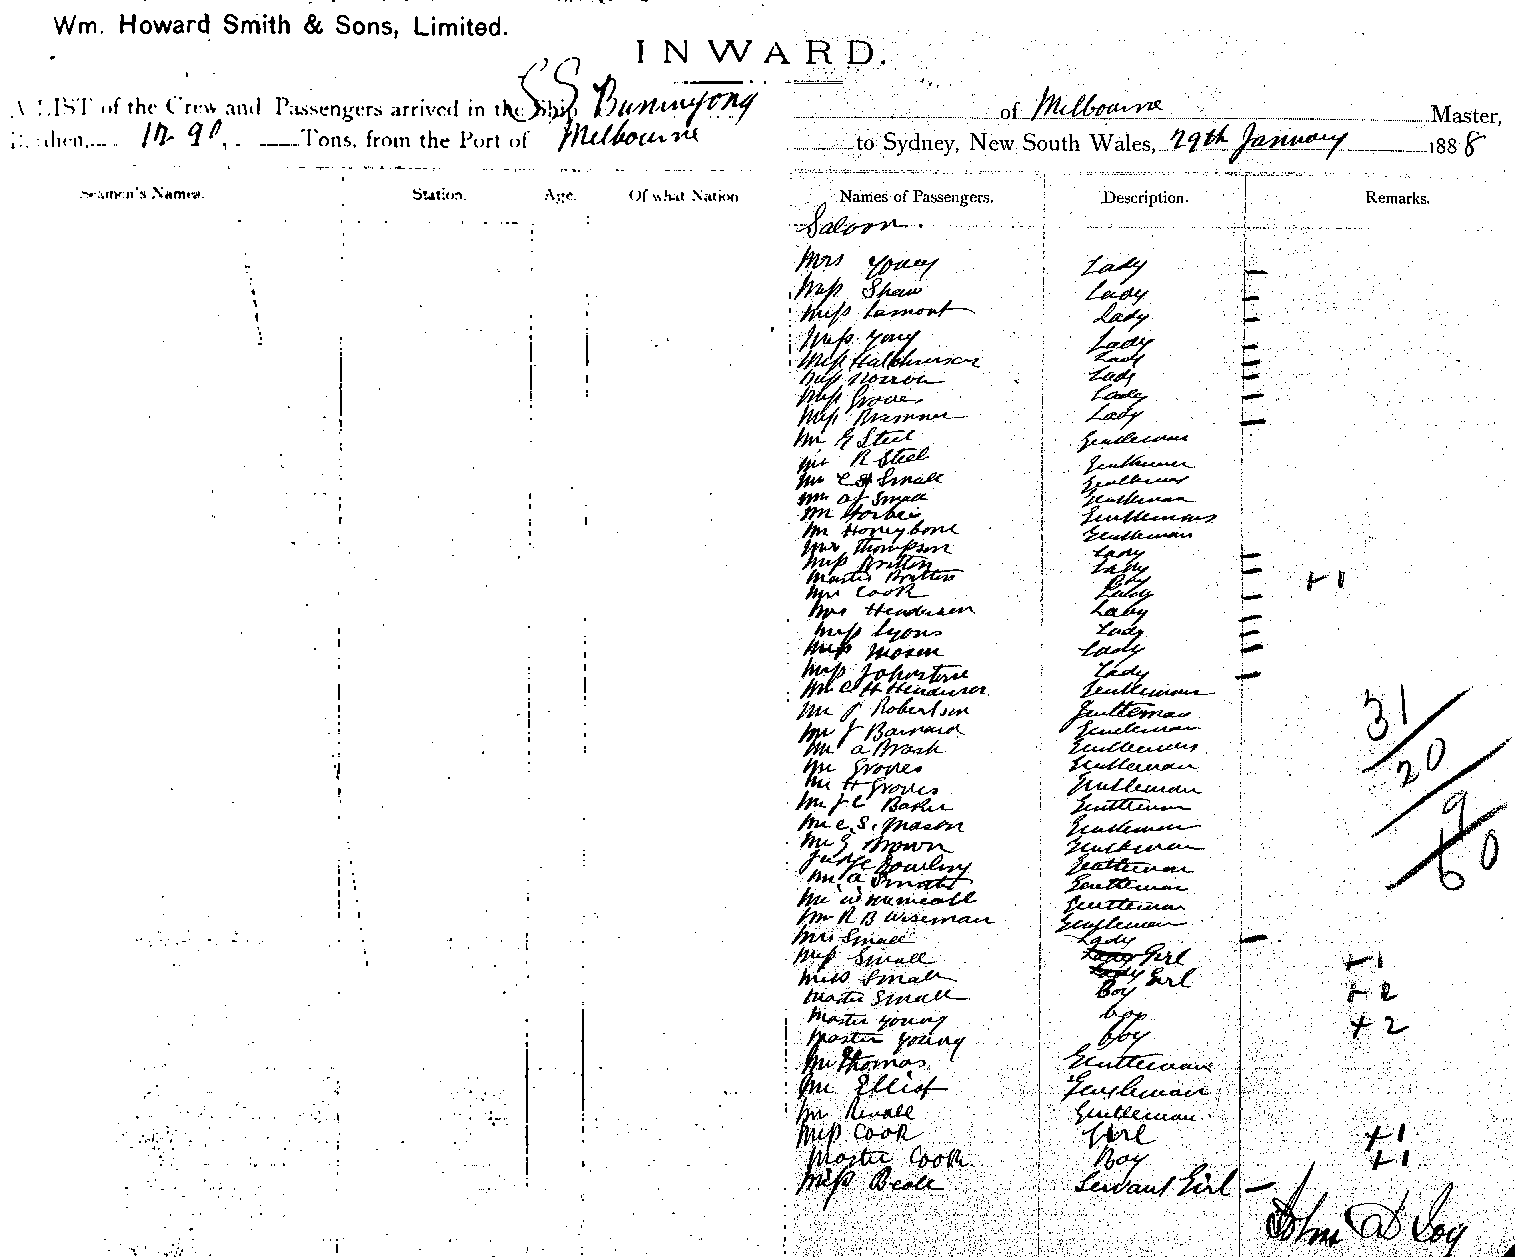 Wm. Howard Smith & Sons, Limited.
INWARD.
A LIST of the Crew and Passengers arrived in the Ship SS Buninyong of Melbourne Master,
Burthen, 1290 Tons, from the Port of Melbourne to Sydney, New South Wales, 29th January 1888
Seamen's Names. Station. Age. Of what Nation Names of Passengers. Description. Remarks.
Saloon.
Mrs Young Lady
Miss Shaw Lady
Miss Lamont Lady
Miss Young Lady
Miss Hutchinson Lady
Miss Lady
Miss Groves Lady
Miss Lady
Mr G Steel Gentleman
Mr R Steel Gentleman
Mr C H Small Gentleman
Mr Small Gentleman
Mr Forbes Gentleman
Mr Honeybone Gentleman
Mrs Thompson Lady
Miss Britten Lady
Master Britten Boy +1
Mrs Cook Lady
Mrs Henderson Lady
Miss Lyons Lady
Miss Mason Lady
Miss Johnstone Lady
Mr C H Henderson Gentleman
Mr J Robertson Gentleman
Mr J Barnard Gentleman
Mr A Brash Gentleman
Mr Groves Gentleman
Mr H Groves Gentleman
Mr J C Baker Gentleman
Mr C. S. Mason Gentleman
Mr G Brown Gentleman
Judge Dowling Gentleman
Mr A Gentleman
Mr W Gentleman
Mr R B Wiseman Gentleman
Mrs Small Lady
Miss Small Lady Girl +1
Miss Small Lady Girl
Master Small Boy +2
Master Young boy
Master Young boy +2
Mr Thomas Gentleman
Mr Elliot Gentleman
Mr Gentleman
Miss Cook Girl +1
Master Cook Boy +1
Miss Beale Servant Girl
31
20
9
60
John